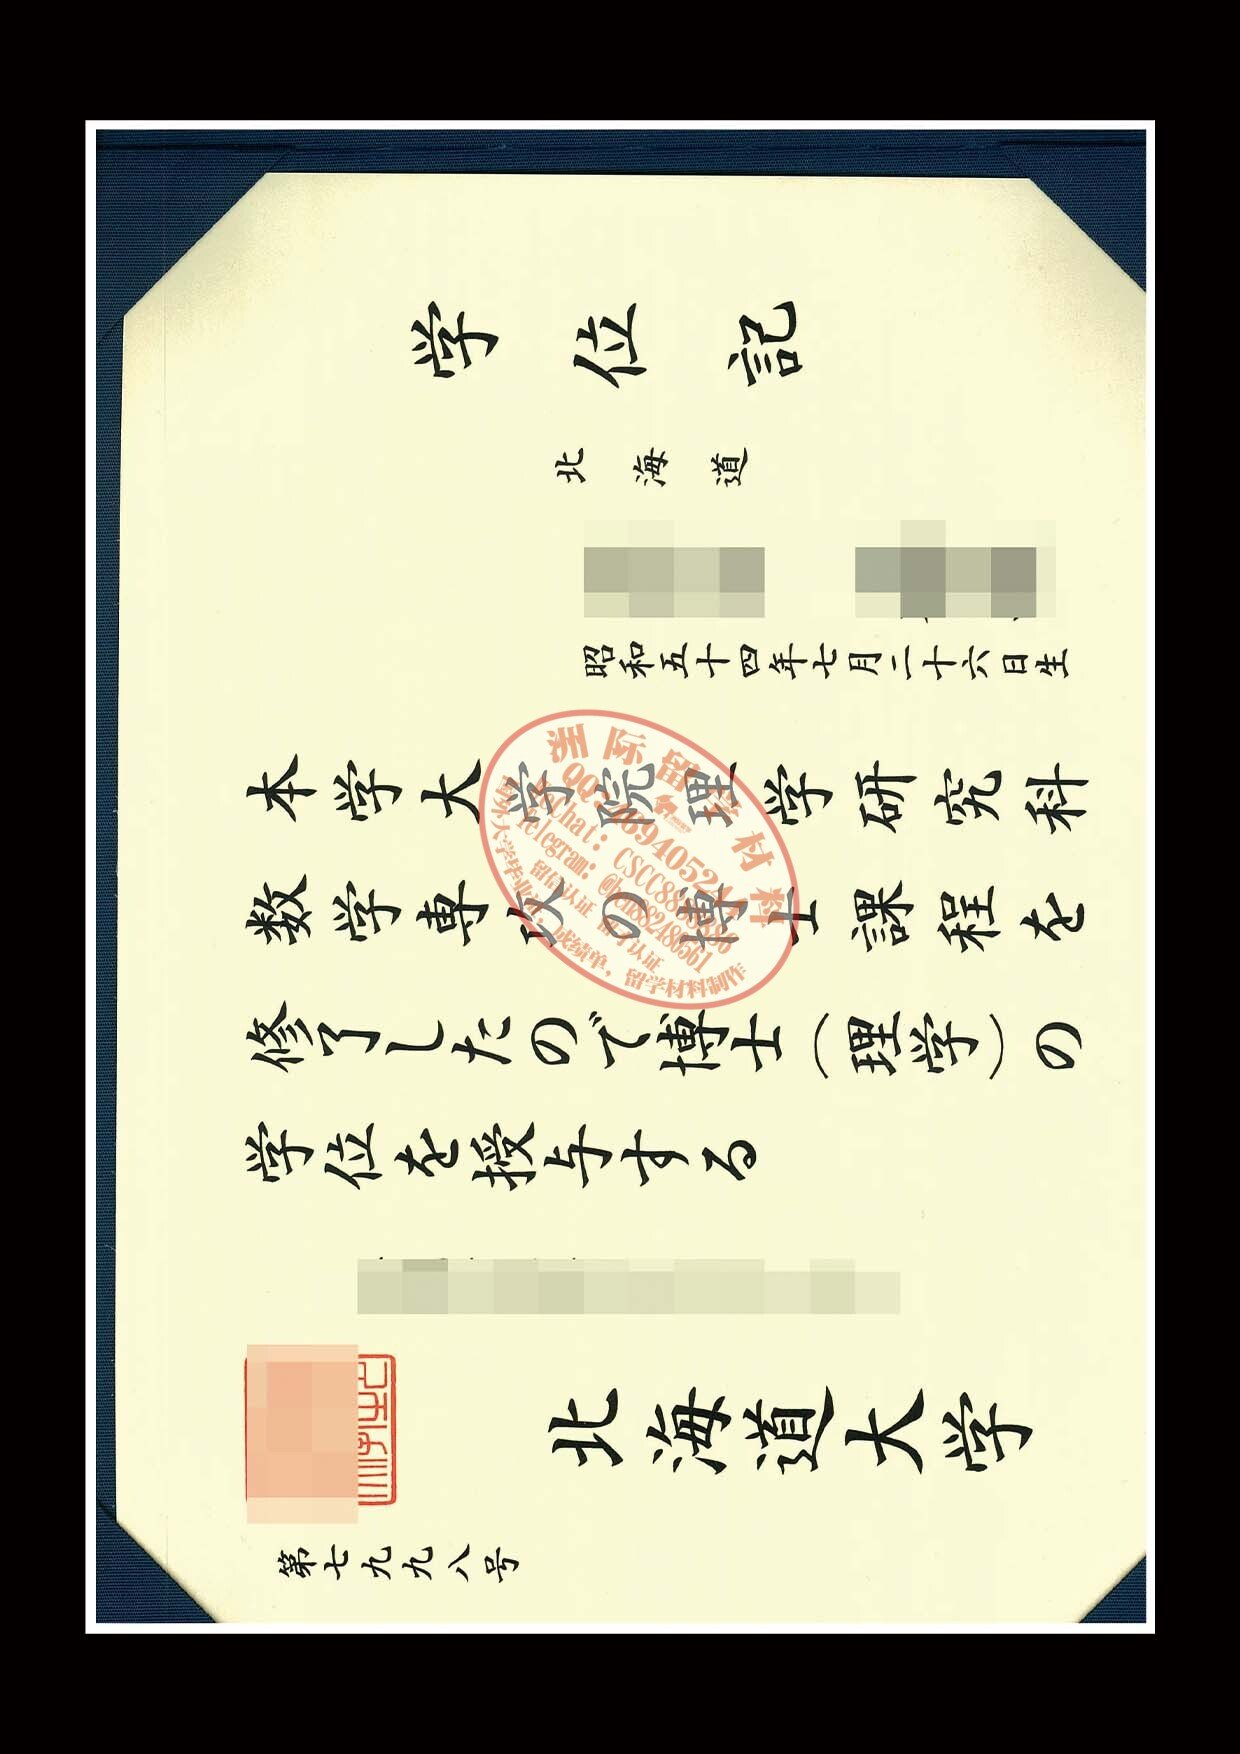 学位記
北海道
昭和五十四年七月二十六日生
本学大学院理学研究科
数学専攻の博士課程を
修了したので博士（理学）の
学位を授与する
北海道大学
第七九九八号
洲际留学材料
留信认证 留学认证
国外大学毕业证，成绩单，留学材料制作